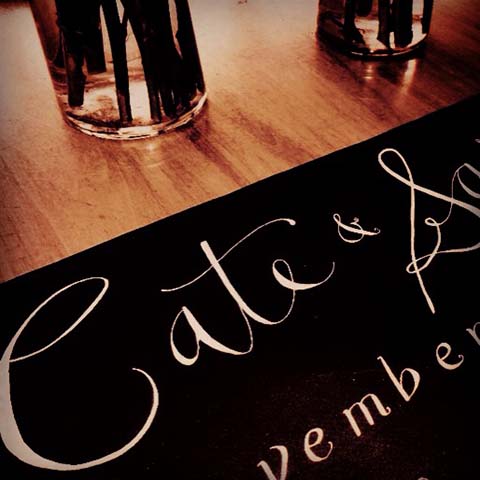 Cate & Sa
vember